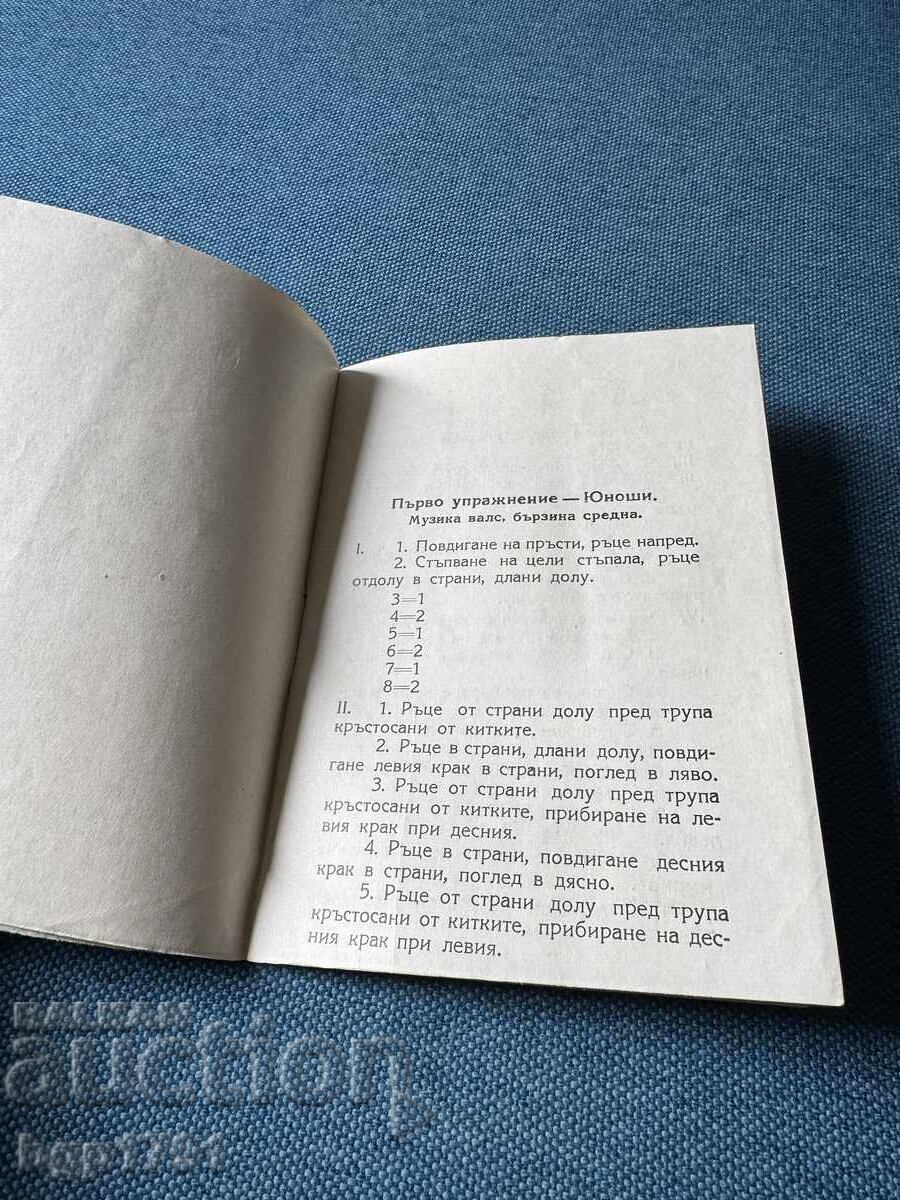 Първо упражнение — Юноши.
Музика валс, бързина средна.
I. 1. Повдигане на пръсти, ръце напред.
2. Стъпване на цели стъпала, ръце
отдолу в страни, длани долу.
3=1
4=2
5=1
6=2
7=1
8=2
II. 1. Ръце от страни долу пред трупа
кръстосани от китките.
2. Ръце в страни, длани долу, повди-
гане левия крак в страни, поглед в ляво.
3. Ръце от страни долу пред трупа
кръстосани от китките, прибиране на ле-
вия крак при десния.
4. Ръце в страни, повдигане десния
крак в страни, поглед в дясно.
5. Ръце от страни долу пред трупа
кръстосани от китките, прибиране на дес-
ния крак при левия.
BALKAN
auction
bgp1721